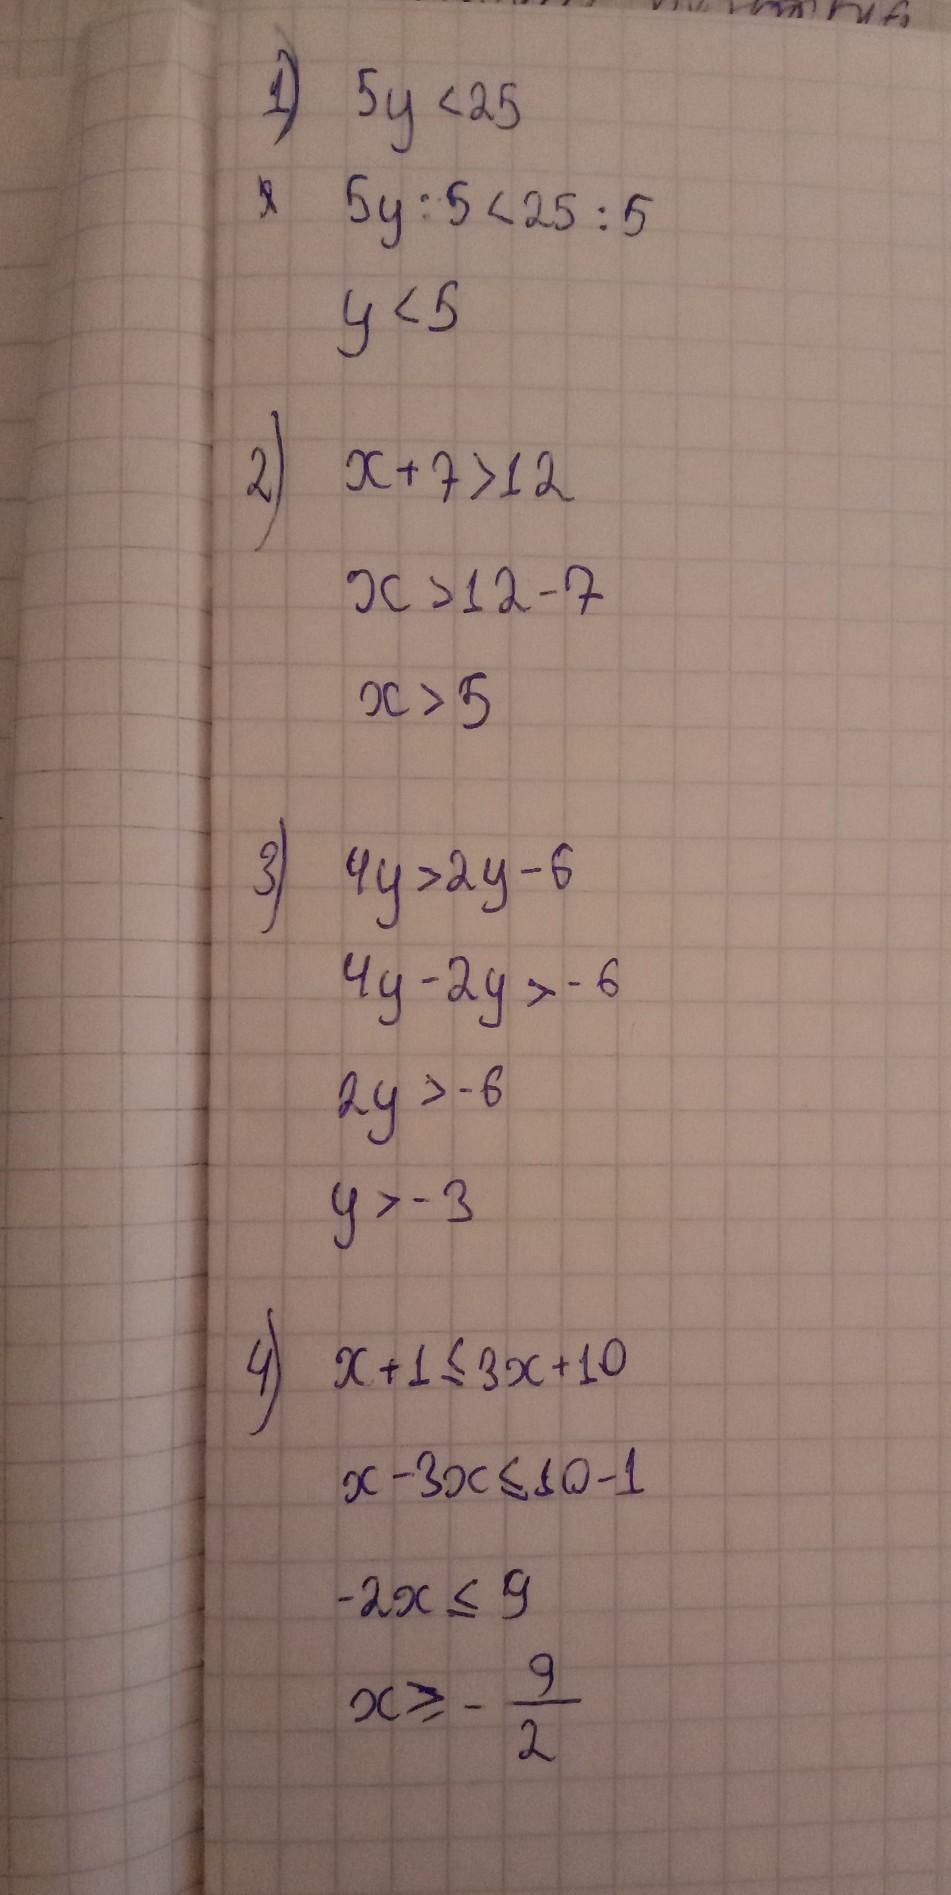 1) 5y < 25
5y : 5 < 25 : 5
y < 5
2) x + 7 > 12
x > 12 - 7
x > 5
3) 4y > 2y - 6
4y - 2y > - 6
2y > - 6
y > - 3
4) x + 1 ≤ 3x + 10
x - 3x ≤ 10 - 1
-2x ≤ 9
x ≥ - 9/2